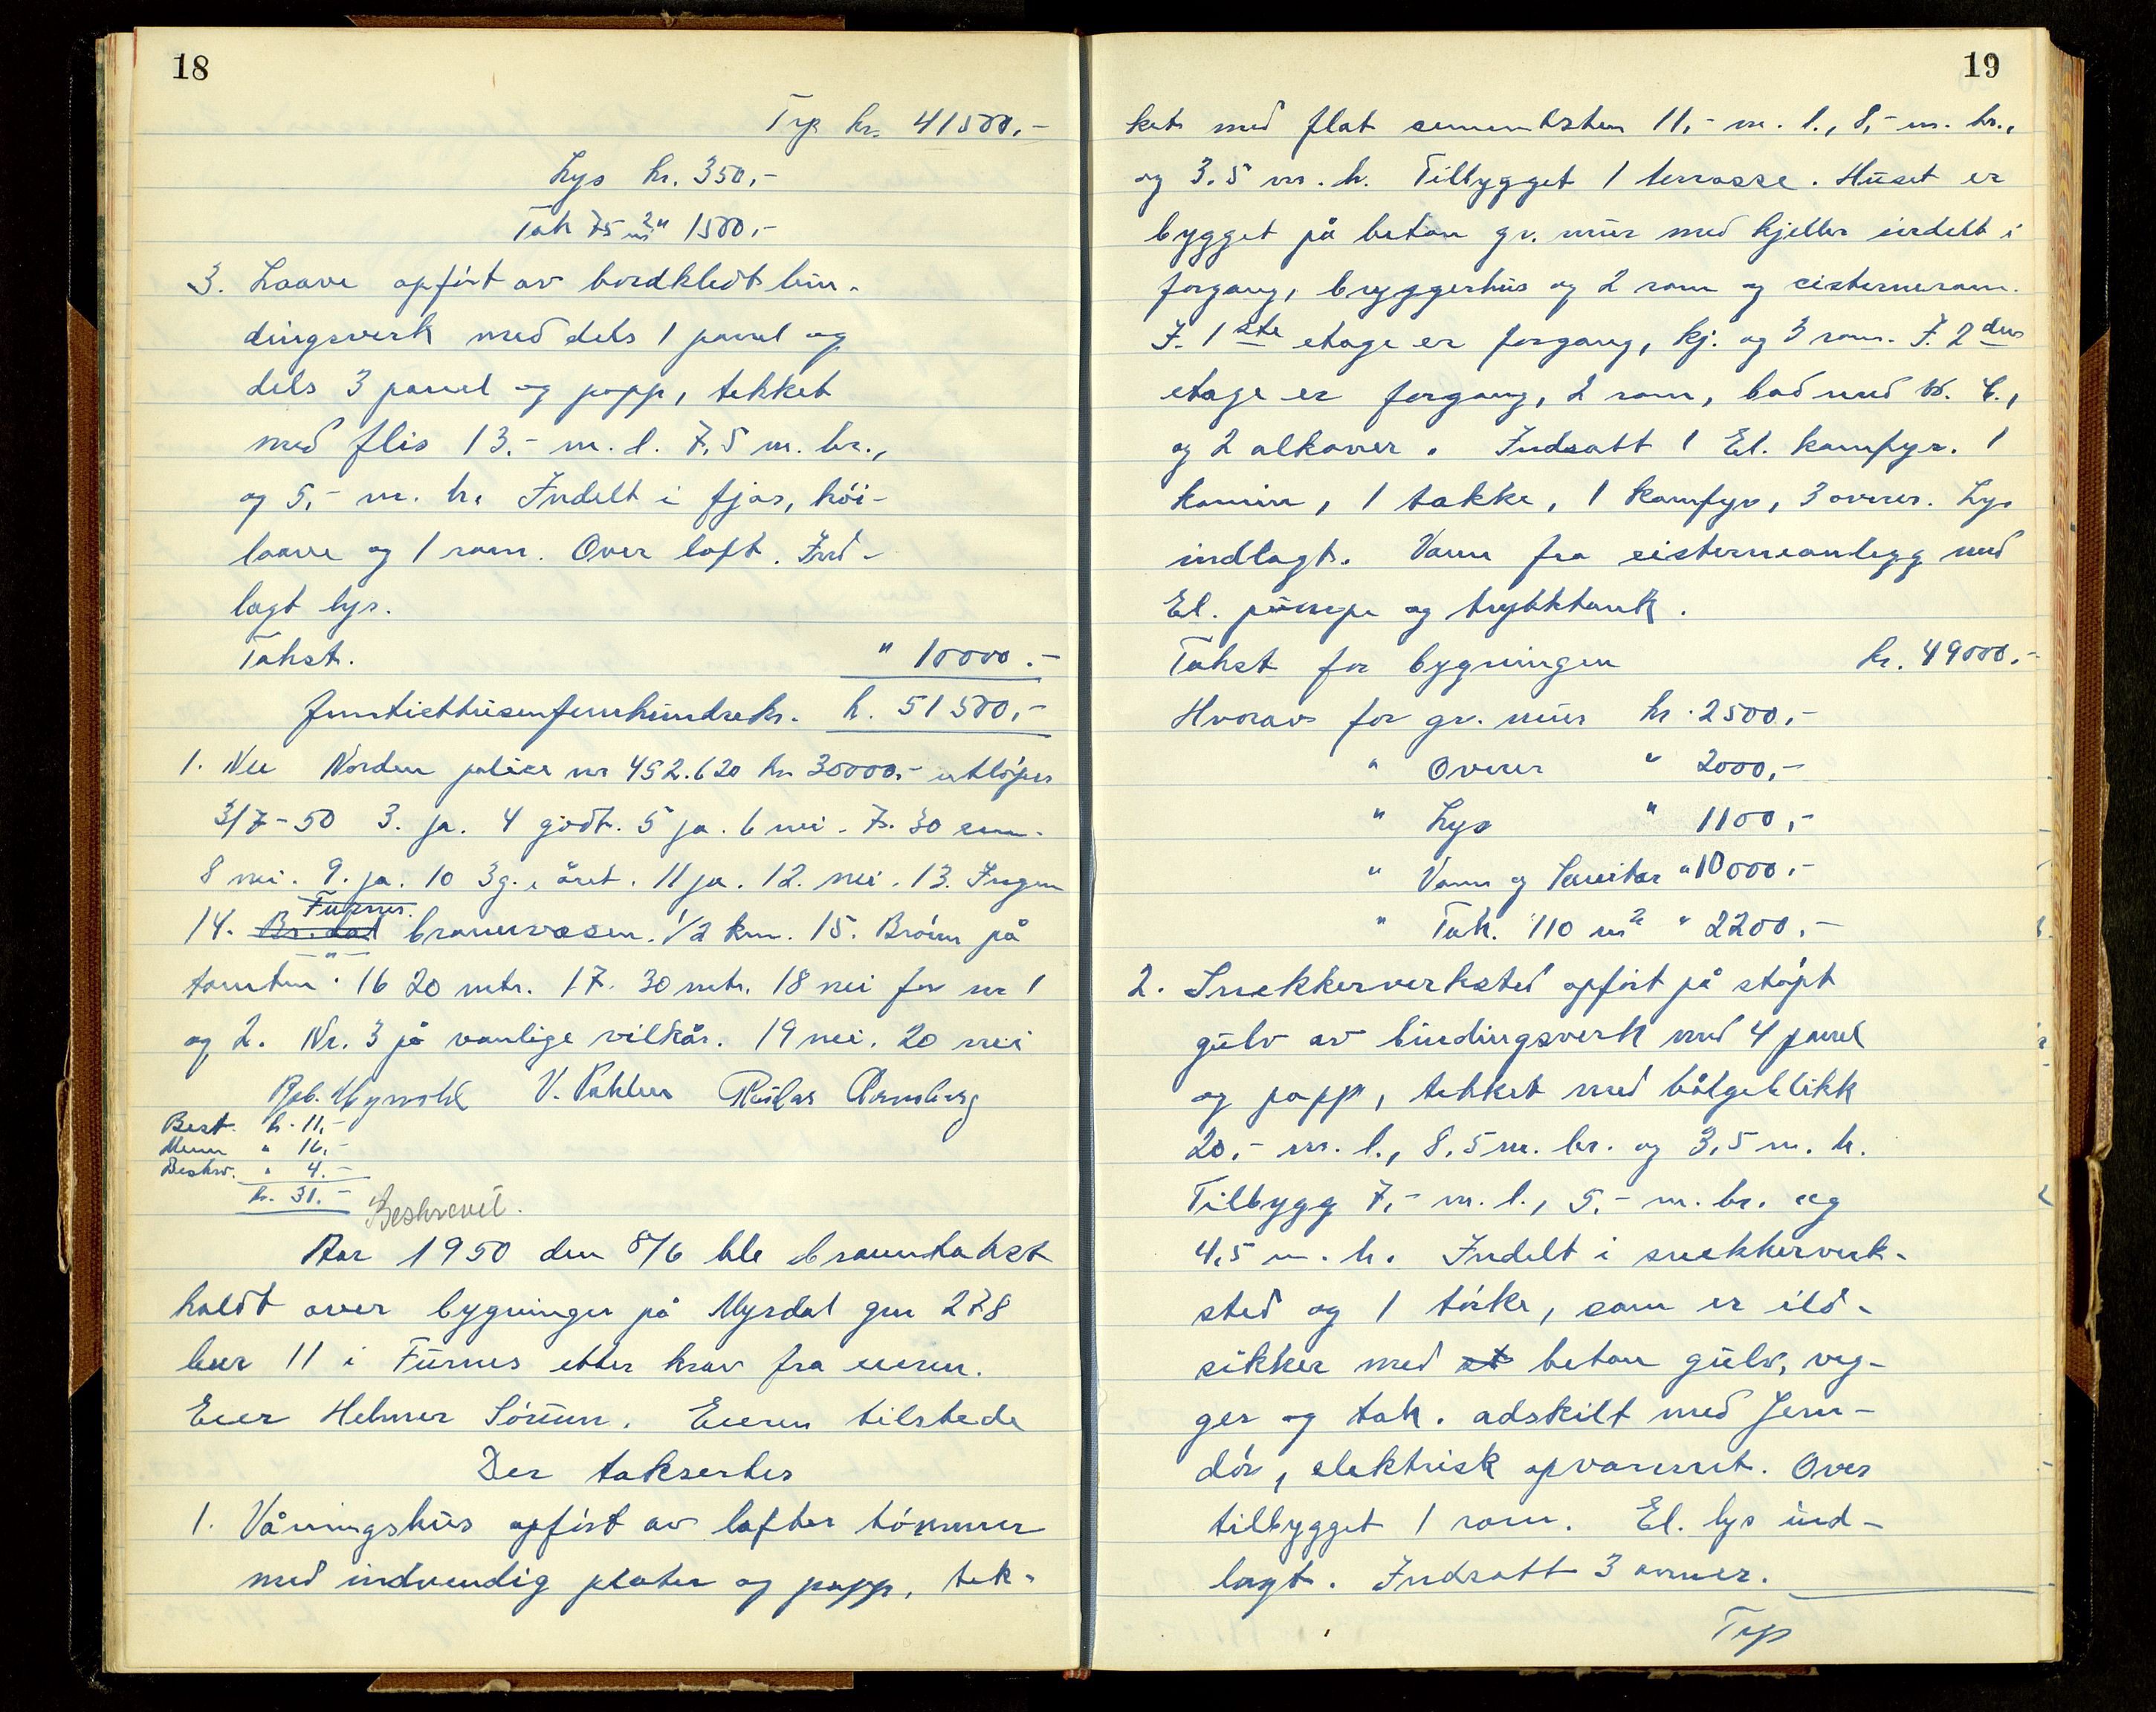 18
Trp kr. 41500,-
Lys kr. 350,-
Tak 75 m² " 1500,-
3. Laave opført av bordkledt bin-
dingsverk med dels 1 panel og
dels 3 panel og papp, tekket
med flis 13.- m. l. 7,5 m. br.,
og 5,- m. h. Indelt i fjøs, höi-
laave og 1 rom. Over loft. Ind-
lagt lys.
Takst. " 10000.-
femtiettusenfemhundrekr. k. 51500,-
1. Nei Norden police nr 452.620 kr 30000.- utlöper
3/7-50 3. ja. 4 godt. 5 ja. 6 nei. 7. 30 cm.
8 nei. 9. ja. 10 3 g. i året. 11 ja. 12. nei. 13. Ingen
Furnes.
14. Br.dal brannvæsen. 1/2 km. 15. Brönn på
tomten. 16 20 mtr. 17. 30 mtr. 18 nei for nr 1
og 2. Nr. 3 på vanlige vilkår. 19 nei. 20 nei
V.
Best. k. 11,-
Menn " 16,-
Beskrv. " 4.-
kr. 31.-
Beskrevet.
Aar 1950 den 8/6 ble branntakst
holdt over bygninger på Myrdal gnr 278
bnr 11 i Furnes etter krav fra eieren.
Eier Helmer Sörum. Eieren tilstede
Der taksertes
1. Våningshus opfört av laftet tömmer
med indvendig plater og papp, tek-
19
ket med flat sementsten 11,- m. l., 8,- m. br.,
og 3.5 m. h. Tilbygget 1 terrasse. Huset er
bygget på beton gr. mur med kjeller indelt i
forgang, bryggerhus og 2 rom og cisternerom.
I. 1ste etage er forgang, kj. og 3 rom. I. 2den
etage er forgang, 2 rom, bad med W. C.,
og 2 alkover. Indsatt 1 El. komfyr. 1
kamin, 1 takke, 1 komfyr, 3 ovner. Lys
indlagt. Vann fra cisterneanlegg med
El. pumpe og trykktank.
Takst for bygningen kr. 49000.-
Hvorav for gr. mur kr. 2500,-
" Ovner " 2000,-
" Lys " 1100,-
" Vann og Sanitær " 10000.-
" Tak. 110 m² " 2200.-
2. Snekkerverksted opfört på stöpt
gulv av bindingsverk med 4 panel
og papp, tekket med bölgeblikk
20,- m. l., 8,5 m. br. og 3,5 m. h.
Tilbygg 7,- m. l., 5,- m. br. og
4,5 m. h. Indelt i snekkerverk-
sted og 1 törke, som er ild-
sikker med st beton gulv, veg-
ger og tak. adskilt med Jern-
dör, elektrisk opvarmet. Over
tilbygget 1 rom. El. lys ind-
lagt. Indsatt 3 ovner.
Trp